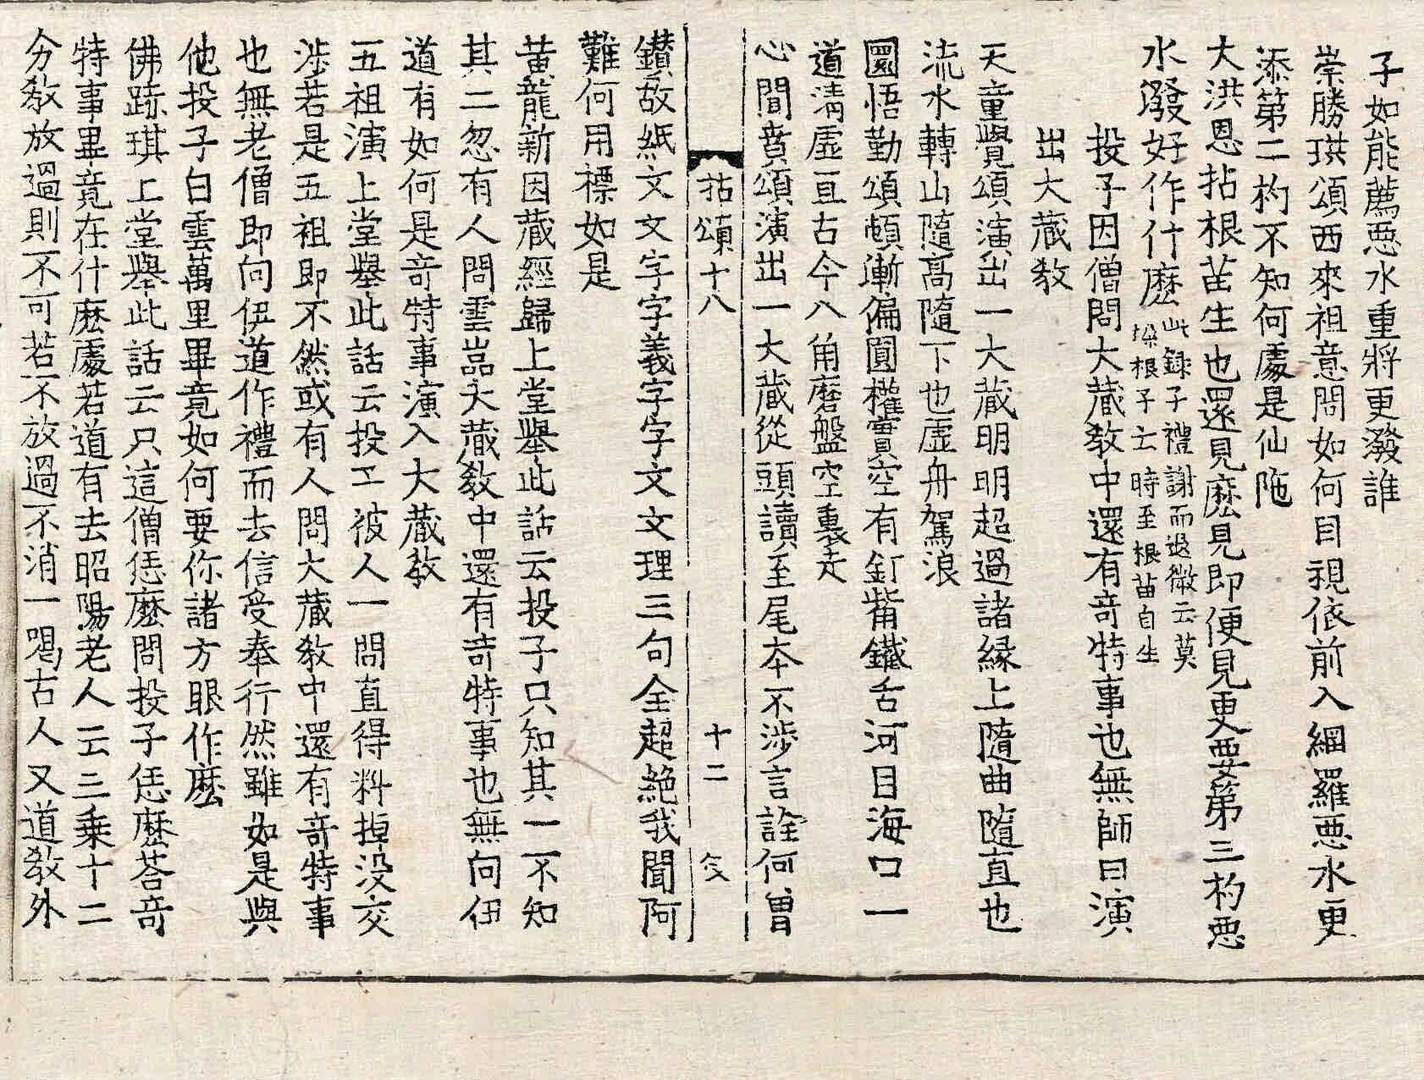 子如能薦惡水重將更潑誰
崇勝珙頌西來祖意問如何目視依前入網羅惡水更
添第二杓不知何處是仙陁
大洪恩拈根苗生也還見麽見即便見更要第三杓惡
水潑好作什麽此錄子禮謝而退徵云莫
垜根子云時至根苗自生
投子因僧問大藏敎中還有竒特事也無師曰演
出大藏敎
天童覺頌演出一大藏明明超過諸緣上隨曲隨直也
流水轉山隨高隨下也虛舟駕浪
圜悟勤頌頓漸偏圓權實空有釘觜鐵舌河目海口一
道淸虛亘古今八角磨盤空裏走
心聞賁頌演出一大藏從頭讀至尾本不涉言詮何曾
拈頌十八 十二
鑽故紙文文字字義字字文文理三句全超絶我聞阿
難何用標如是
黃龍新因藏經歸上堂擧此話云投子只知其一不知
其二忽有人問雲嵓大藏敎中還有竒特事也無向伊
道有如何是竒特事演入大藏敎
五祖演上堂擧此話云投子被人一問直得料掉没交
涉若是五祖即不然或有人問大藏敎中還有竒特事
也無老僧即向伊道作禮而去信受奉行然雖如是與
他投子白雲萬里畢竟如何要你諸方眼作麽
佛跡琪上堂擧此話云只這僧恁麽問投子恁麽荅竒
特事畢竟在什麽處若道有去昭陽老人云三乘十二
分敎放過則不可若不放過不消一喝古人又道敎外